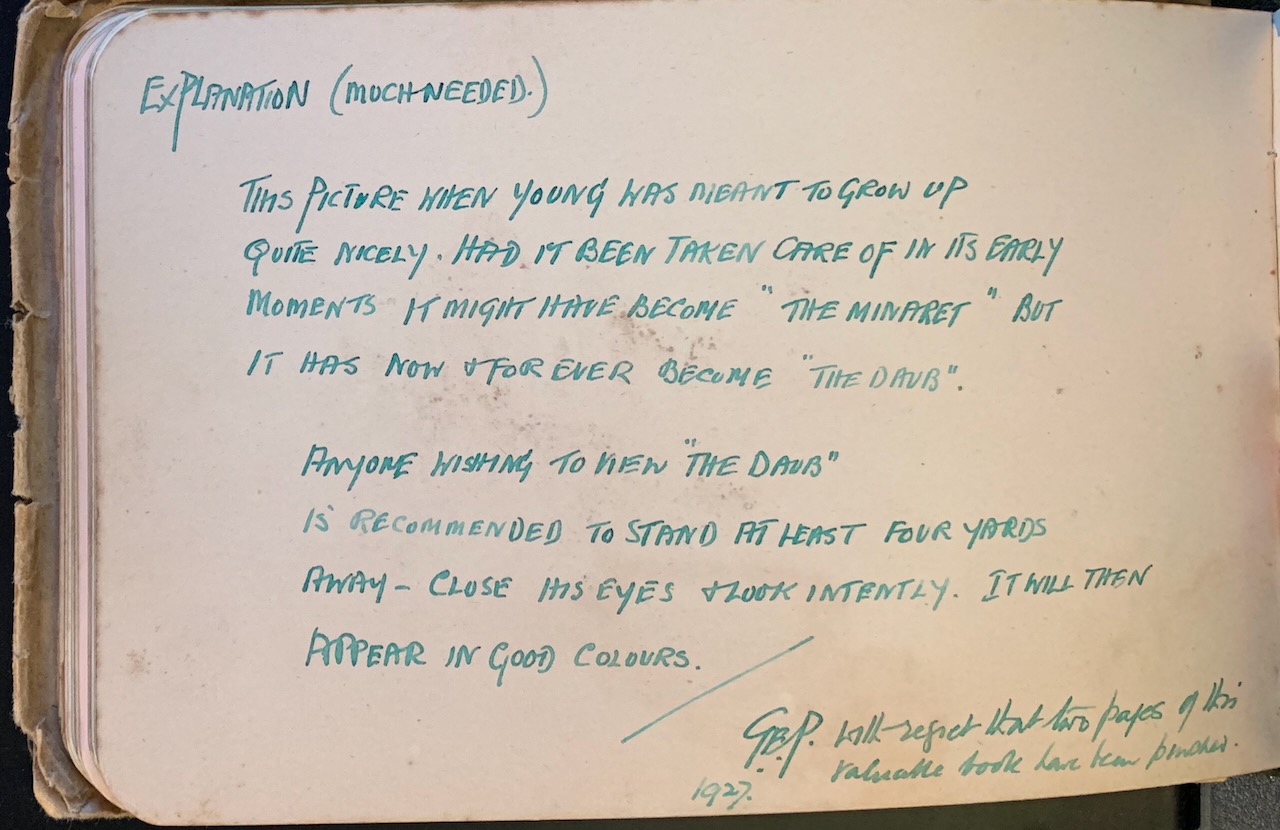 EXPLANATION (MUCH-NEEDED.)
THIS PICTURE WHEN YOUNG WAS MEANT TO GROW UP
QUITE NICELY. HAD IT BEEN TAKEN CARE OF IN ITS EARLY
MOMENTS IT MIGHT HAVE BECOME "THE MINARET" BUT
IT HAS NOW & FOR EVER BECOME "THE DAUB".
ANYONE WISHING TO VIEW "THE DAUB"
IS RECOMMENDED TO STAND AT LEAST FOUR YARDS
AWAY – CLOSE HIS EYES & LOOK INTENTLY. IT WILL THEN
APPEAR IN GOOD COLOURS.
G.E.P. with regret that two pages of this
valuable book have been
1927.